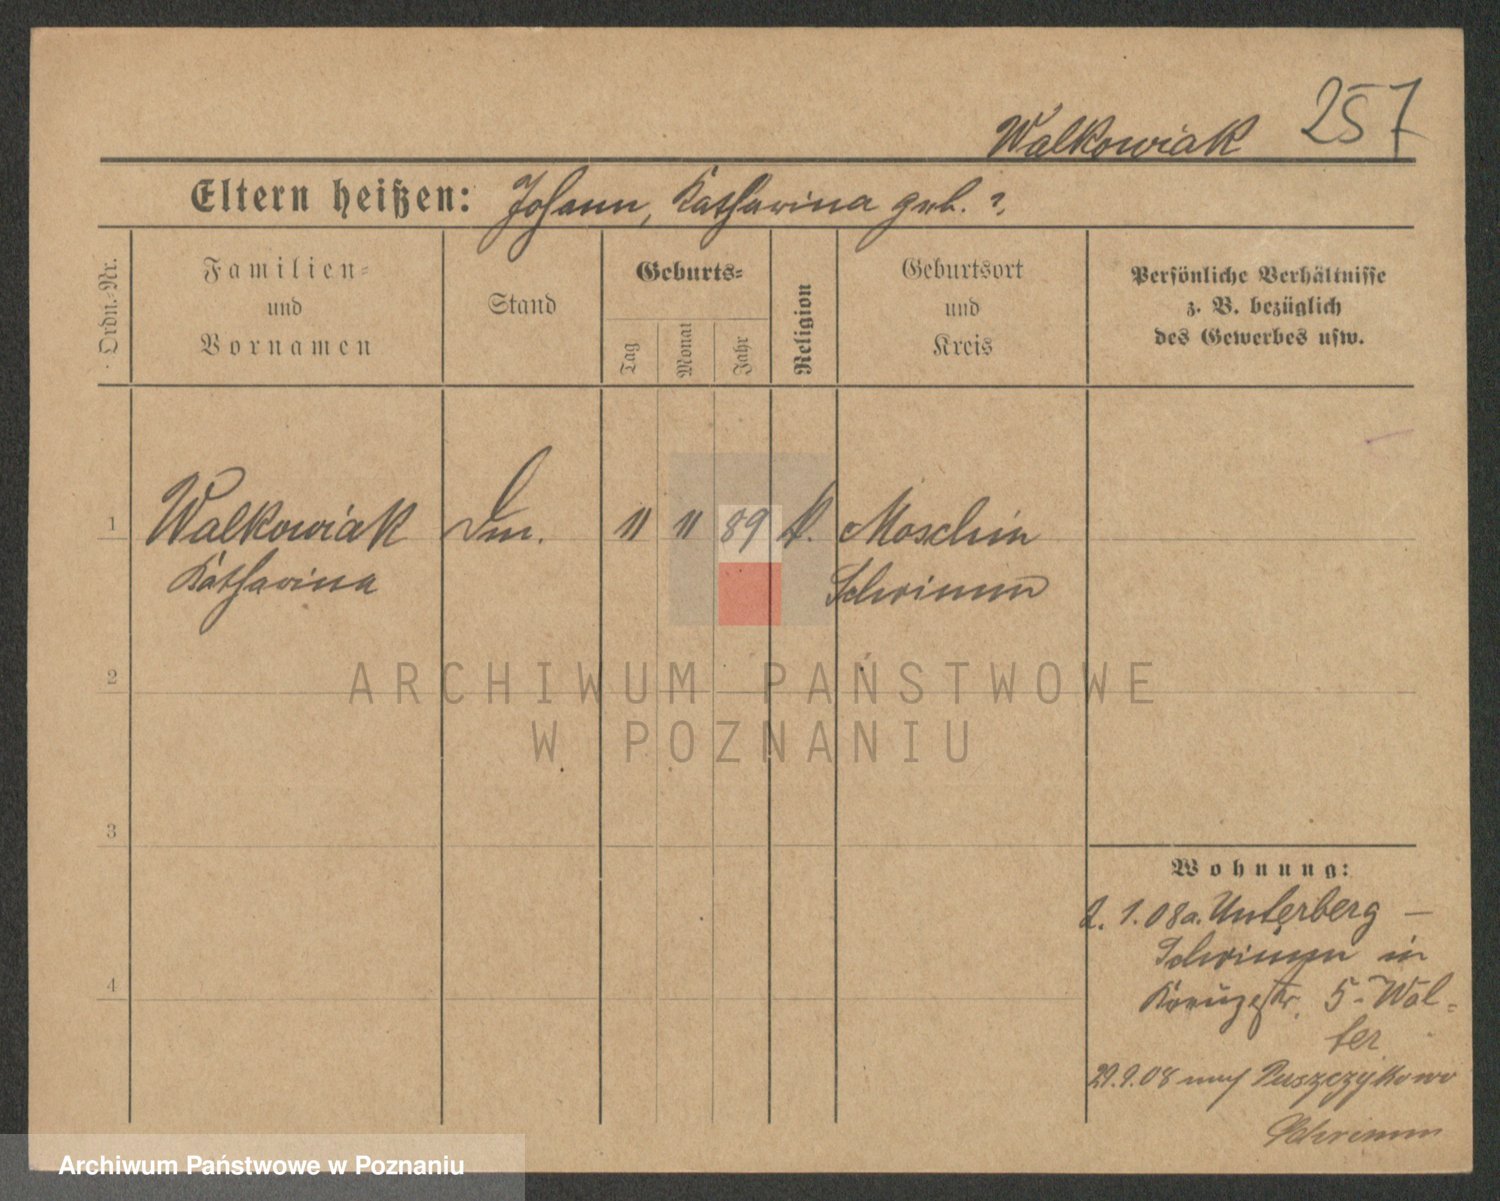 257
Walkowiak
Eltern heißen: Johann, Katharina geb. ?.
Ordn.-Nr.
Familien-
und
Vornamen
Stand
Geburts-
Tag
Monat
Jahr
Religion
Geburtsort
und
Kreis
Persönliche Verhältnisse
z. B. bezüglich
des Gewerbes usw.
1 Walkowiak Dm. 11 11 89 k. Moschin
Katharina Schrimm
2
ARCHIWUM PAŃSTWOWE
W POZNANIU
3
Wohnung:
2. 1. 08 a. Unterberg –
Schrimm in
4
Kreuzstr. 5 - Wal-
ter
29.9.08 nach Puszczykowo
Schrimm
Archiwum Państwowe w Poznaniu